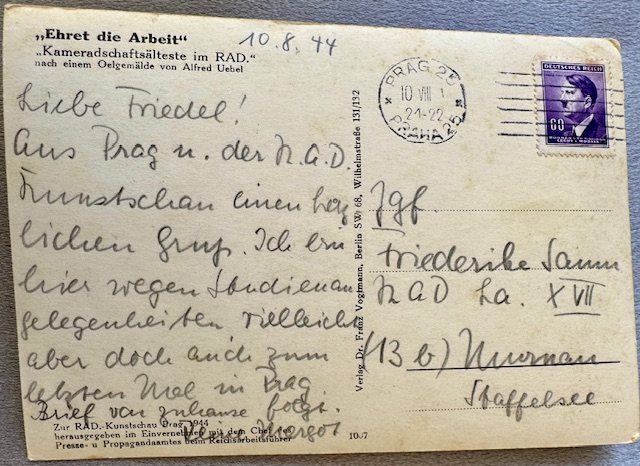 „Ehret die Arbeit“
„Kameradschaftsälteste im RAD.“
nach einem Oelgemälde von Alfred Uebel
10.8.44
Liebe Friedel!
Aus Prag u. der R.A.D.
Kunstschau einen herz
lichen Gruß. Ich bin
hier wegen Studienan
gelegenheiten vielleicht
aber doch auch zum
letzten Mal in Prag.
Brief von zuhause folgt.
Deine Margot
Zur RAD.-Kunstschau Prag 1944
herausgegeben im Einvernehmen mit dem Chef des
Presse- u. Propagandaamtes beim Reichsarbeitsführer
1007
Verlag Dr. Franz Vogtmann, Berlin SW 68, Wilhelmstraße 131/132
PRAG 25
10 VIII
21-22
PRAHA 25
DEUTSCHES REICH
60
BÖHMEN UND MÄHREN
ČECHY A MORAVA
Jgf.
Friederike Samm
RAD La. XVII
(13 b) Murnau
Staffelsee